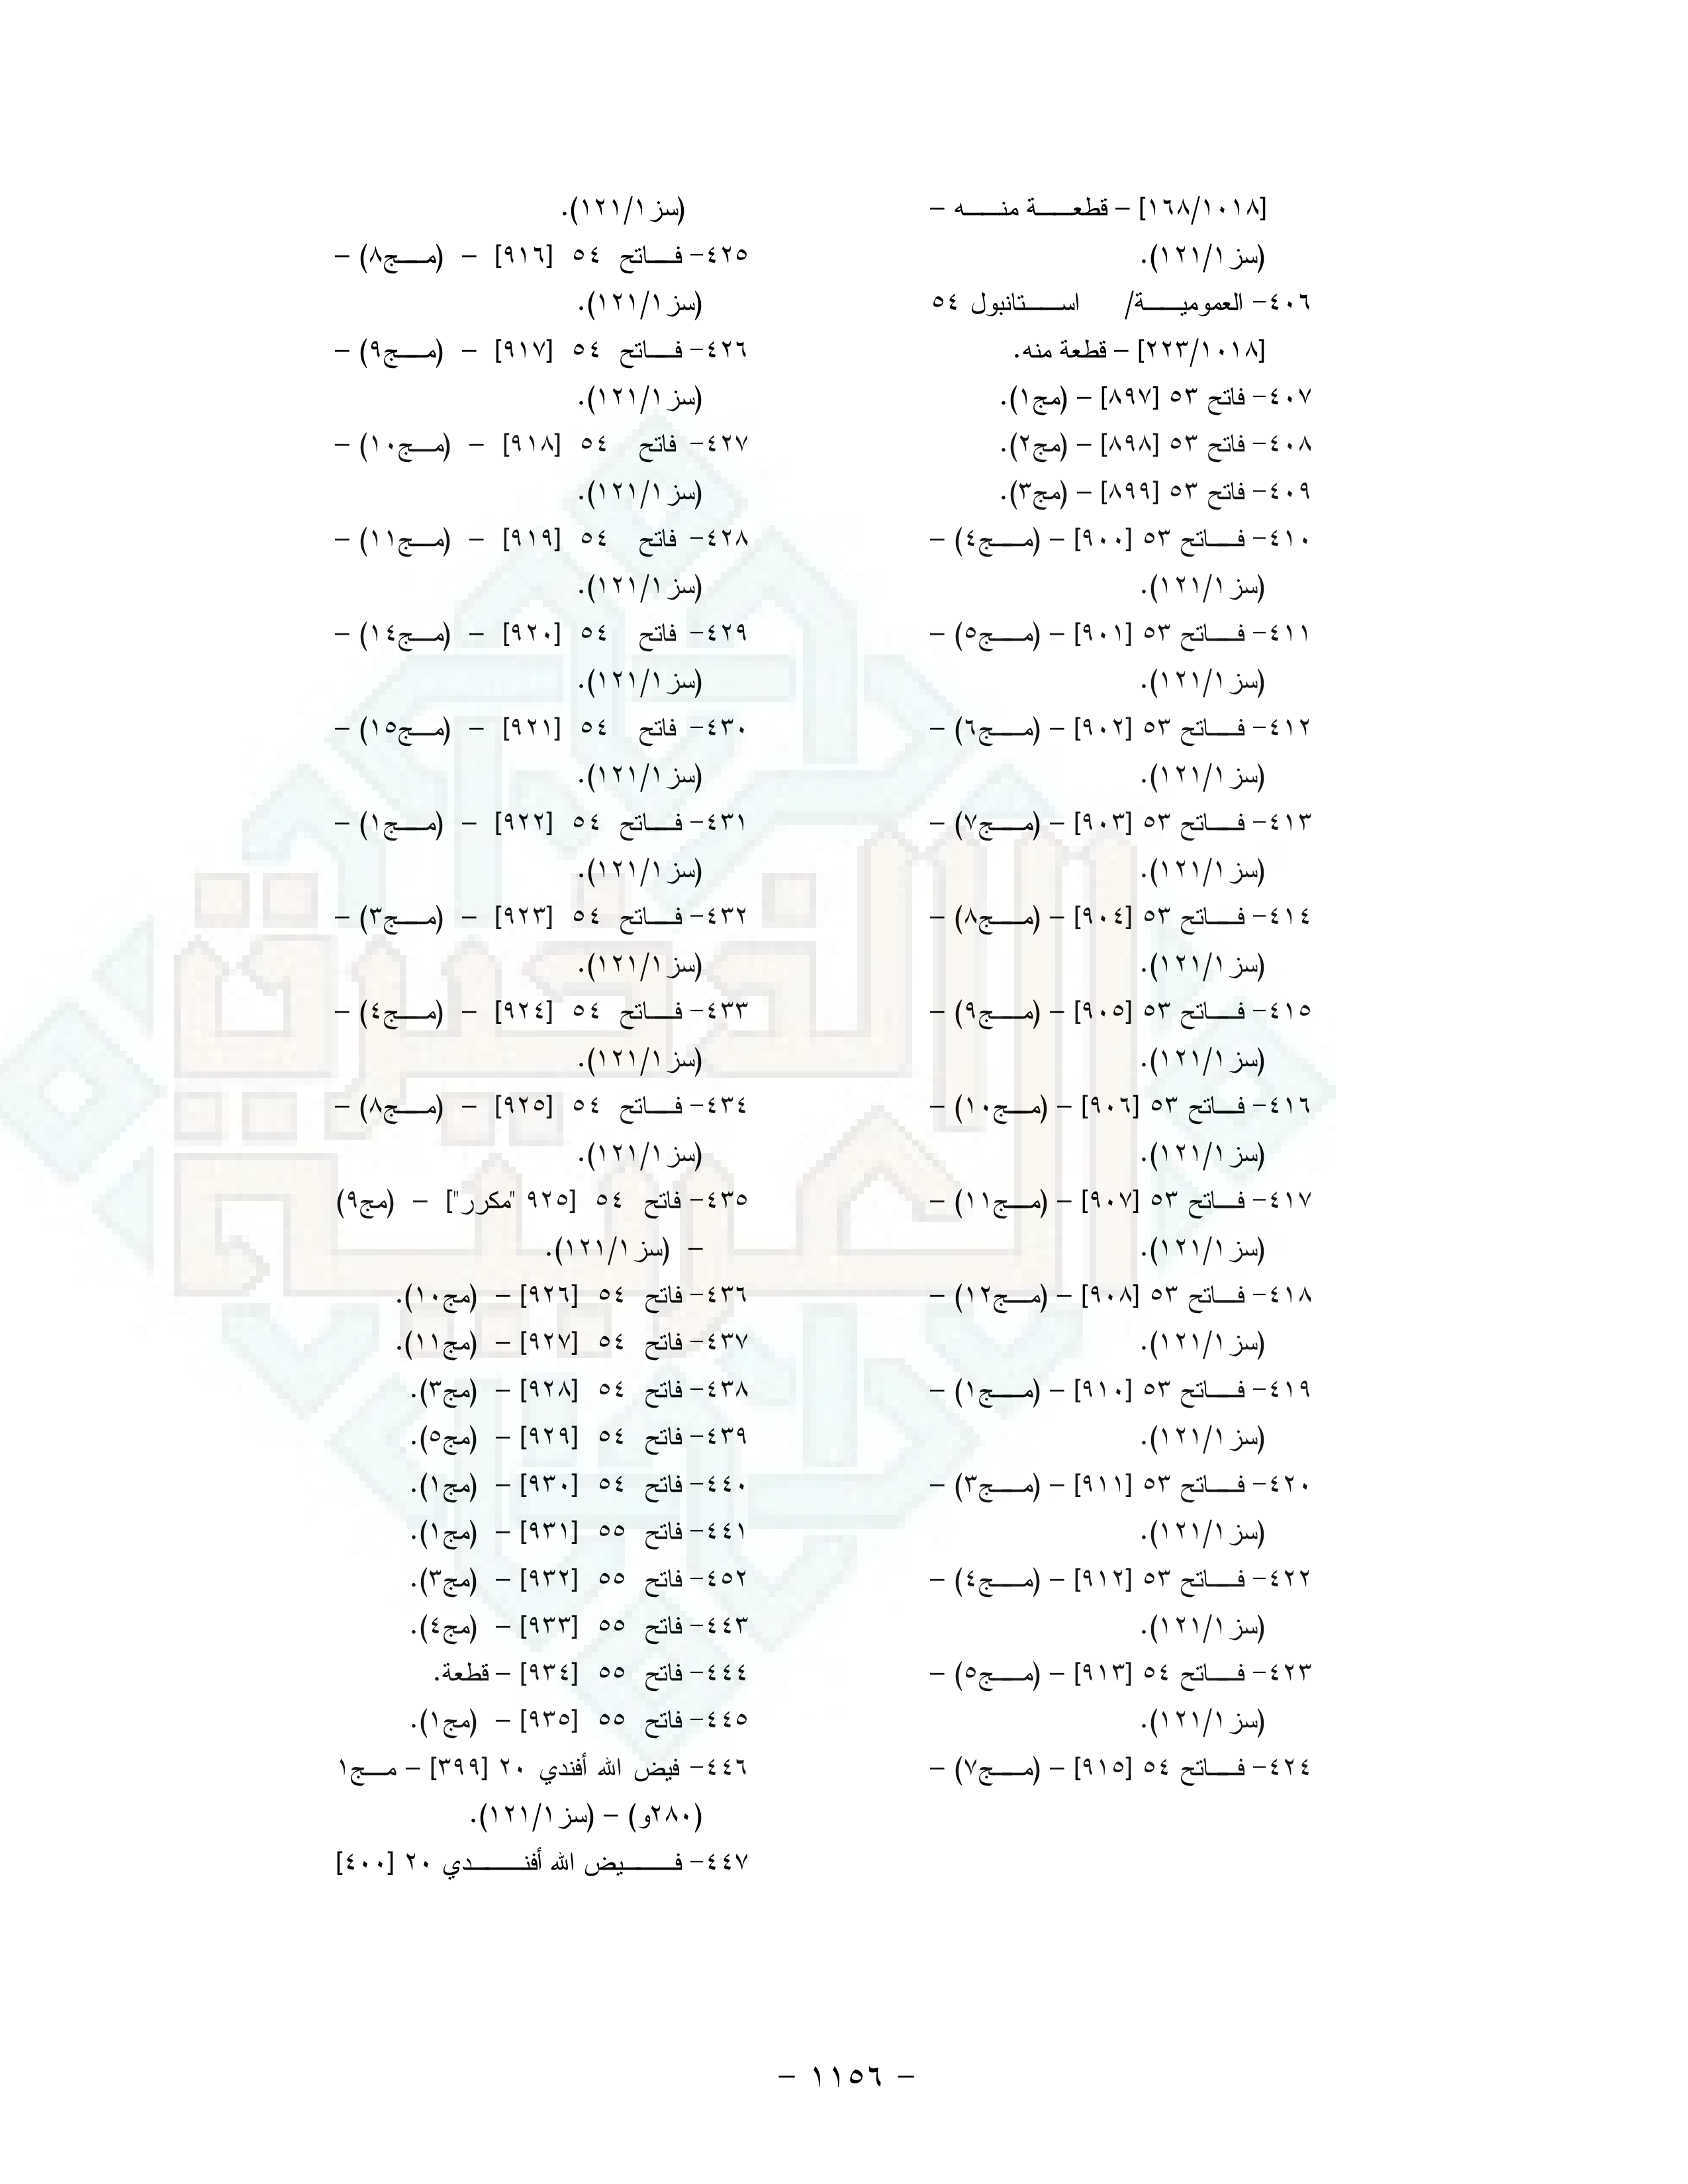 [١٦٨/١٠١٨] – قطعة منه –
(سز١٢١/١).
٤٠٦- العمومية/ استانبول ٥٤
[٢٢٣/١٠١٨] – قطعة منه.
٤٠٧- فاتح ٥٣ [٨٩٧] – (مج١).
٤٠٨- فاتح ٥٣ [٨٩٨] – (مج٢).
٤٠٩- فاتح ٥٣ [٨٩٩] – (مج٣).
٤١٠- فاتح ٥٣ [٩٠٠] – (مج٤) –
(سز١٢١/١).
٤١١- فاتح ٥٣ [٩٠١] – (مج٥) –
(سز١٢١/١).
٤١٢- فاتح ٥٣ [٩٠٢] – (مج٦) –
(سز١٢١/١).
٤١٣- فاتح ٥٣ [٩٠٣] – (مج٧) –
(سز١٢١/١).
٤١٤- فاتح ٥٣ [٩٠٤] – (مج٨) –
(سز١٢١/١).
٤١٥- فاتح ٥٣ [٩٠٥] – (مج٩) –
(سز١٢١/١).
٤١٦- فاتح ٥٣ [٩٠٦] – (مج١٠) –
(سز١٢١/١).
٤١٧- فاتح ٥٣ [٩٠٧] – (مج١١) –
(سز١٢١/١).
٤١٨- فاتح ٥٣ [٩٠٨] – (مج١٢) –
(سز١٢١/١).
٤١٩- فاتح ٥٣ [٩١٠] – (مج١) –
(سز١٢١/١).
٤٢٠- فاتح ٥٣ [٩١١] – (مج٣) –
(سز١٢١/١).
٤٢٢- فاتح ٥٣ [٩١٢] – (مج٤) –
(سز١٢١/١).
٤٢٣- فاتح ٥٤ [٩١٣] – (مج٥) –
(سز١٢١/١).
٤٢٤- فاتح ٥٤ [٩١٥] – (مج٧) –
(سز١٢١/١).
٤٢٥- فاتح ٥٤ [٩١٦] – (مج٨) –
(سز١٢١/١).
٤٢٦- فاتح ٥٤ [٩١٧] – (مج٩) –
(سز١٢١/١).
٤٢٧- فاتح ٥٤ [٩١٨] – (مج١٠) –
(سز١٢١/١).
٤٢٨- فاتح ٥٤ [٩١٩] – (مج١١) –
(سز١٢١/١).
٤٢٩- فاتح ٥٤ [٩٢٠] – (مج١٤) –
(سز١٢١/١).
٤٣٠- فاتح ٥٤ [٩٢١] – (مج١٥) –
(سز١٢١/١).
٤٣١- فاتح ٥٤ [٩٢٢] – (مج١) –
(سز١٢١/١).
٤٣٢- فاتح ٥٤ [٩٢٣] – (مج٣) –
(سز١٢١/١).
٤٣٣- فاتح ٥٤ [٩٢٤] – (مج٤) –
(سز١٢١/١).
٤٣٤- فاتح ٥٤ [٩٢٥] – (مج٨) –
(سز١٢١/١).
٤٣٥- فاتح ٥٤ [٩٢٥ "مكرر"] – (مج٩)
– (سز١٢١/١).
٤٣٦- فاتح ٥٤ [٩٢٦] – (مج١٠).
٤٣٧- فاتح ٥٤ [٩٢٧] – (مج١١).
٤٣٨- فاتح ٥٤ [٩٢٨] – (مج٣).
٤٣٩- فاتح ٥٤ [٩٢٩] – (مج٥).
٤٤٠- فاتح ٥٤ [٩٣٠] – (مج١).
٤٤١- فاتح ٥٥ [٩٣١] – (مج١).
٤٥٢- فاتح ٥٥ [٩٣٢] – (مج٣).
٤٤٣- فاتح ٥٥ [٩٣٣] – (مج٤).
٤٤٤- فاتح ٥٥ [٩٣٤] – قطعة.
٤٤٥- فاتح ٥٥ [٩٣٥] – (مج١).
٤٤٦- فيض الله أفندي ٢٠ [٣٩٩] – مج١
(٢٨٠و) – (سز١٢١/١).
٤٤٧- فيض الله أفندي ٢٠ [٤٠٠]
– ١١٥٦ –
الذخيرة
العربية